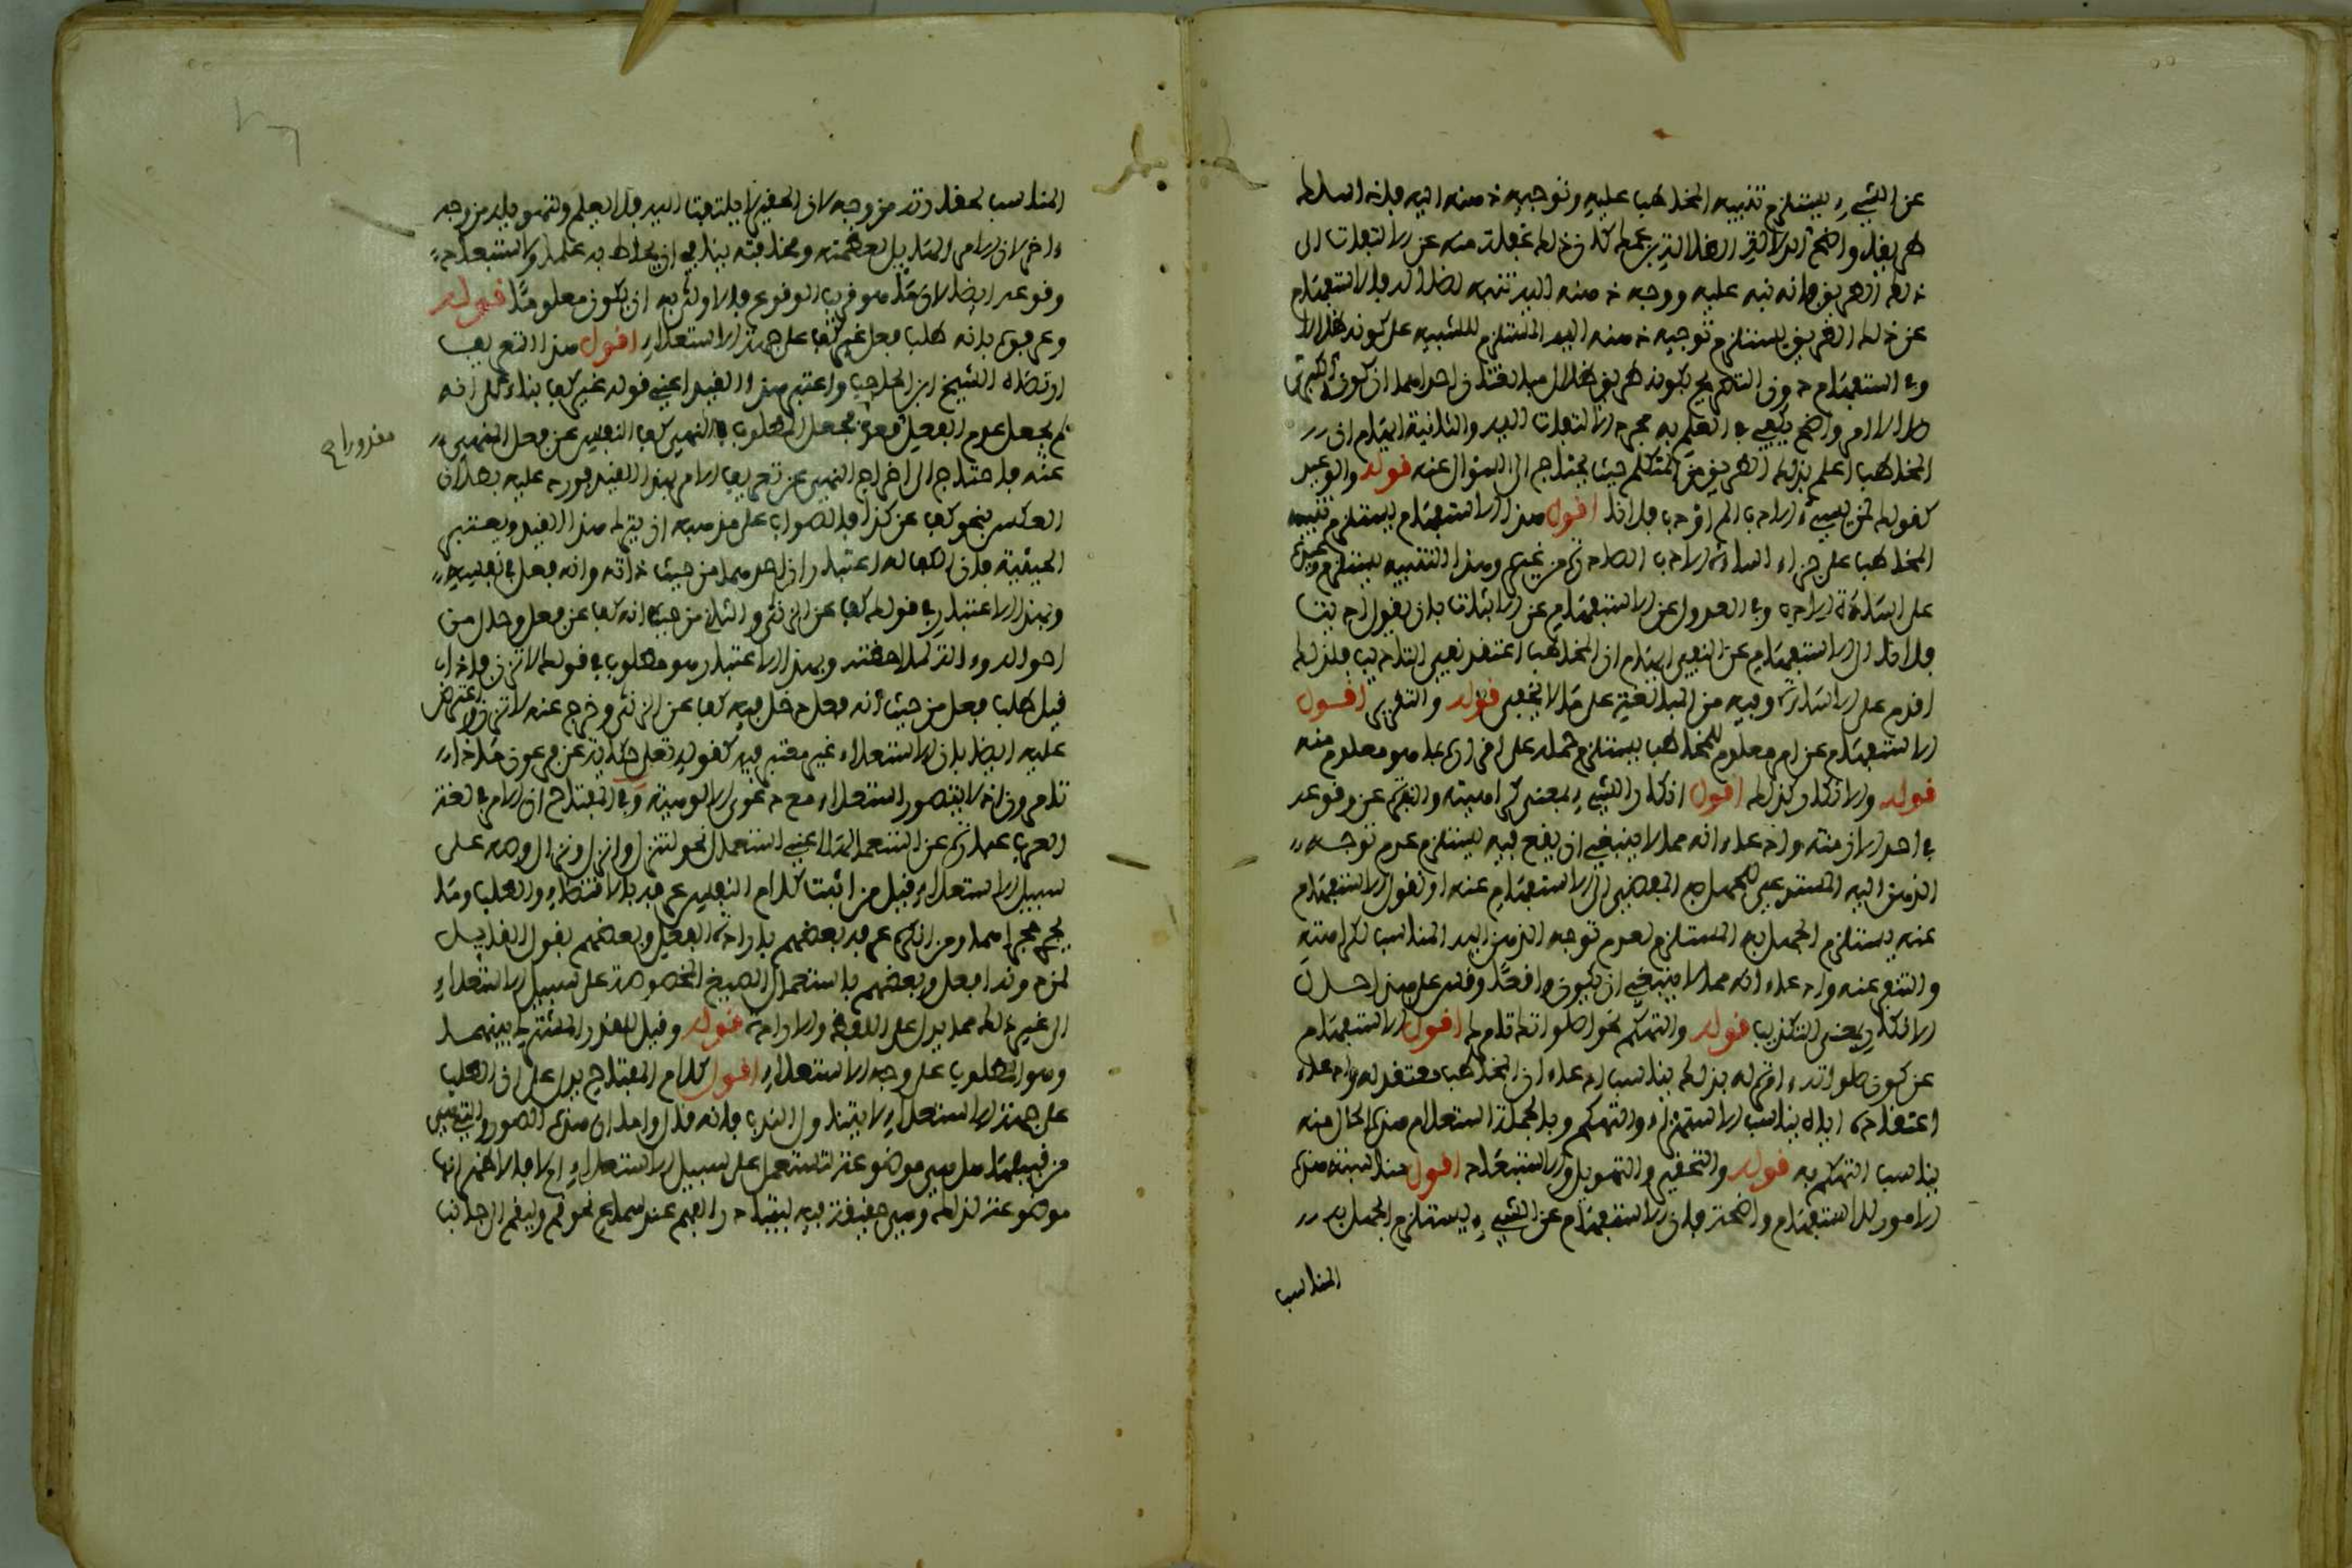 عن الشيء يستلزم تنبيه المخاطب عليه وتوجيه ذهنه اليه فاذا سلط
طريقا واضح الدلالة الضلالة بزعمك كان ذلك غفلة منه عن الالتفات الى
ذلك الطريق فانه نبه عليه ووجه ذهنه اليه تنبه لضلاله فالاستفهام
عن ذلك الطريق يستلزم توجيه ذهنه اليه المستلزم للتنبيه على كونه ضلالا
وفي الاستفهام دون التصريح بكونه طريق ضلال مبالغتان احداهما ان كون
هذا الامر واضح يكفي في العلم به مجرد الالتفات اليه والثانية ايهام ان
المخاطب اعلم بذلك الطريق من المتكلم حيث يحتاج الى السؤال عنه قوله والوعيد
كقولك لمن يسيء الادب الم اؤدب فلانا اقول هذا الاستفهام يستلزم تنبيه
المخاطب على جزاء اساءة الادب الصادرة من غيره وهذا التنبيه يستلزم وعيده
على اساءة الادب وفي العدول عن الاستفهام عن الاثبات بان يقول ادبت
فلانا الى الاستفهام عن النفي ايهام ان المخاطب اعتقد نفي التاديب فلذلك
اقدم على الاساءة وفيه من المبالغة على ما لا يخفى قوله والتقرير اقول
الاستفهام عن امر معلوم للمخاطب يستلزم حمله على اقراره بما هو معلوم منه
قوله والانكار وكذلك اقول انكار الشيء بمعنى كراهيته والنفرة عن وقوعه
في احد الازمنة وادعاء انه مما لا ينبغي ان يقع فيه يستلزم عدم توجه
الذهن اليه المستدعي للجهل به المفضي الى الاستفهام عنه او نقول الاستفهام
عنه يستلزم الجهل به المستلزم لعدم توجه الذهن اليه المناسب لكراهته
والتنفر عنه وادعاء انه مما لا ينبغي ان يكون واقعا وقس على هذا حال
الانكار بمعنى التكذيب قوله والتهكم نحو اصلواتك تامرك اقول الاستفهام
عن كون صلواته امرة له بذلك يناسب ادعاء ان المخاطب معتقد له وادعاء
اعتقاده اياه يناسب الاستهزاء والتهكم وبالجملة استعلام هذه الحال منه
يناسب التهكم به قوله والتحقير والتهويل والاستبعاد اقول مناسبة هذه
الامور للاستفهام واضحة فان الاستفهام عن الشيء يستلزم الجهل به
المناسب
المناسب لحقارته من وجه لان الحقير لا يلتفت اليه فلا يعلم ولتهويله من وجه
اخر لان الامر الهايل لعظمته وفخامته ينافي ان يحاط به علما ولاستبعاد
وقوعه ايضا لان ما هو قريب الوقوع فالاولى به ان يكون معلوما قوله
وعرفوه بانه طلب فعل غير كف على جهة الاستعلاء اقول هذا التعريف
ارتضاه الشيخ ابن الحاجب واعتبر هذا القيد اعني قوله غير كف بناء على انه
لم يجعل عدم الفعل مقدورا فجعل المطلوب بالنهي كف النفس عن فعل المنهي
مقدورا صح
عنه فاحتاج الى اخراج النهي عن تعريف الامر بهذا القيد فورد عليه بطلان
العكس بنحو كف عن كذا فالصواب على مذهبه ان يترك هذا القيد ويعتبر
الحيثية فان الكف له اعتباران احدهما من حيث ذاته وانه فعل في نفسه
وبهذا الاعتبار في قولك كف عن الزنى والثاني من حيث انه كف عن فعل وحال من
احواله والة لملاحظته وبهذا الاعتبار هو مطلوب في قولك لا تزن فاذا
قيل طلب فعل من حيث انه فعل دخل فيه كف عن الزنى وخرج عنه لا تزن واعترض
عليه ايضا بان الاستعلاء غير معتبر فيه كقوله تعالى حكاية عن فرعون ماذا
تامرون اذ لا يتصور استعلاء مع دعوى الالوهية وفي المفتاح ان الامر في لغة
العرب عبارة عن استعمالها اعني استعمال نحو لتنزل وانزل ونزال وصه على
سبيل الاستعلاء قيل من اثبت كلام النفس عرفه بالاقتضاء والطلب وما
يجري مجراهما ومن انكره عرفه بعضهم بارادة الفعل وبعضهم بقول القائل
لمن دونه افعل وبعضهم باستعمال الصيغ المخصوصة على سبيل الاستعلاء
الى غير ذلك مما يدل على اللفظ والارادة قوله وقيل للقدر المشترك بينهما
وهو الطلب على وجه الاستعلاء اقول كلام المفتاح يدل على ان الطلب
على جهة الاستعلاء لا يتناول الندب فانه قال واما ان هذه الصور والتي هي
من قبيلها هل هي موضوعة لتستعمل على سبيل الاستعلاء ام لا فالاظهر انها
موضوعة لذلك وهي حقيقة فيه لتبادر الفهم عند سماع نحو قم وليقم الى جانب